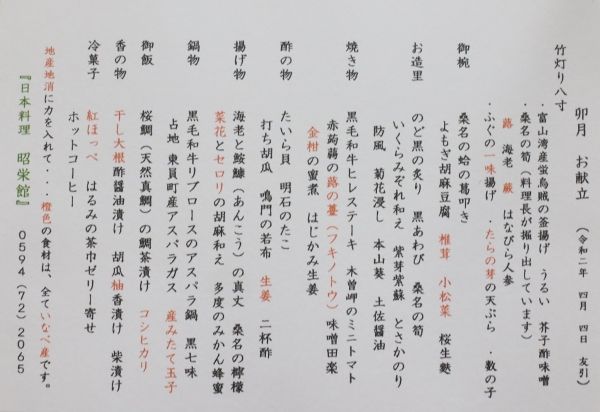 卯月 お献立 (令和二年 四月 四日 友引)
竹灯り八寸
・富山湾産蛍烏賊の釜揚げ うるい 芥子酢味噌
・桑名の筍(料理長が掘り出しています)
蕗 海老 蕨 はなびら人参
・ふぐの一味揚げ ・たらの芽の天ぷら ・数の子
御椀
桑名の蛤の葛叩き
よもぎ胡麻豆腐 椎茸 小松菜 桜生麩
お造里
のど黒の炙り 黒あわび 桑名の筍
いくらみぞれ和え 紫芽紫蘇 とさかのり
防風 菊花浸し 本山葵 土佐醤油
焼き物
黒毛和牛ヒレステーキ 木曽岬のミニトマト
赤蒟蒻の蕗の薹(フキノトウ)味噌田楽
金柑の蜜煮 はじかみ生姜
酢の物
たいら貝 明石のたこ
打ち胡瓜 鳴門の若布 生姜 二杯酢
揚げ物
海老と鮟鱇(あんこう)の真丈 桑名の檸檬
菜花とセロリの胡麻和え 多度のみかん蜂蜜
鍋物
黒毛和牛リブロースのアスパラ鍋 黒七味
占地 東員町産アスパラガス 産みたて玉子
御飯
桜鯛(天然真鯛)の鯛茶漬け コシヒカリ
香の物
干し大根酢醤油漬け 胡瓜柚香漬け 柴漬け
冷菓子
紅ほっぺ はるみの茶巾ゼリー寄せ
ホットコーヒー
地産地消に力を入れて・・・橙色の食材は、全ていなべ産です。
『日本料理 昭栄館』 0594(72)2065